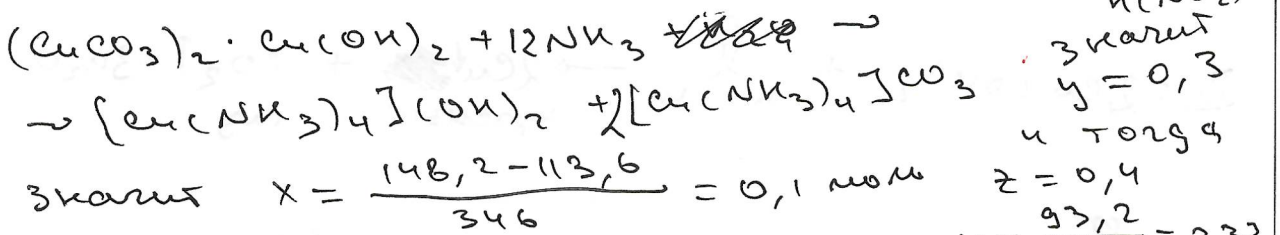 (CuCO₃)₂ · Cu(OH)₂ + 12NH₃ →
→ [Cu(NH₃)₄](OH)₂ + 2[Cu(NH₃)₄]CO₃
значит x = (148,2 − 113,6) / 346 = 0,1 моль
значит
y = 0,3
и тогда
z = 0,4
93,2